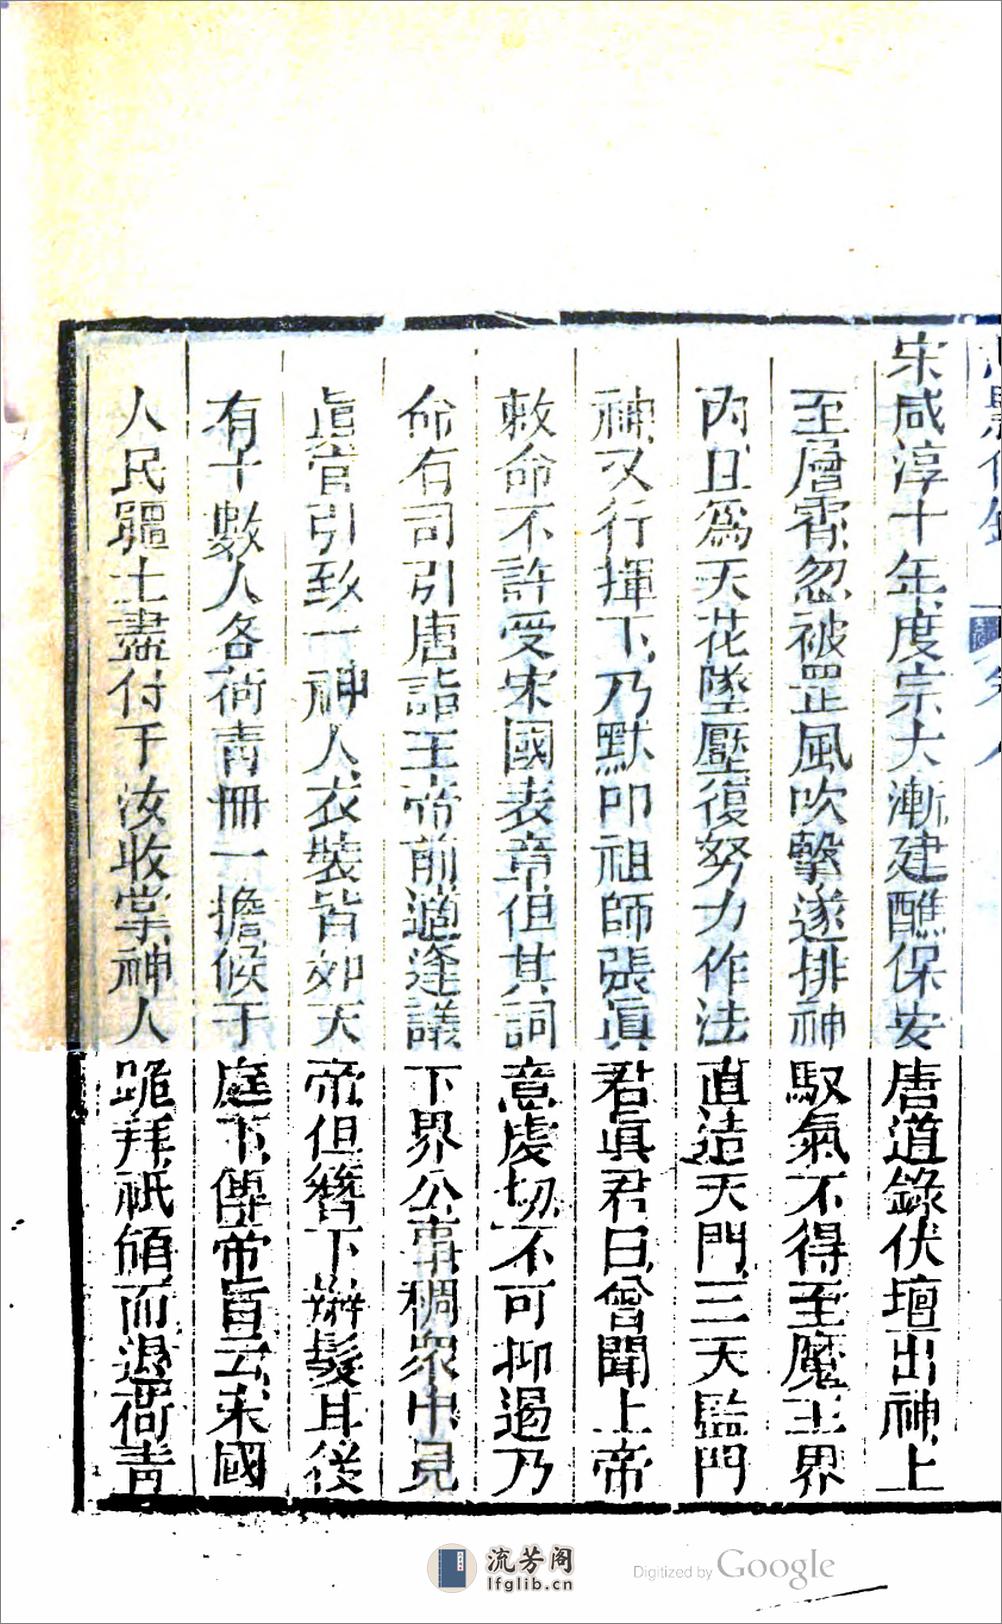 宋咸淳十年度宗大漸建醮保安唐道錄伏壇出神上
至層霄忽被罡風吹擊遂排神馭氣不得至魔王界
內且為天花墜壓復努力作法直造天門三天監門
神又行揮下乃默叩祖師張眞君眞君曰曾聞上帝
敕命不許受宋國表章但其詞意虔切不可抑遏乃
命有司引唐詣王帝前適逢議下界公事稠眾中見
眞官引致一神人衣裝皆如天帝但簪下辮髮耳後
有十數人各荷青冊一擔候于庭下傳帝旨云宋國
人民疆土盡付于汝收掌神人跪拜祇領而退荷青
流芳阁
lfglib.cn
Digitized by Google